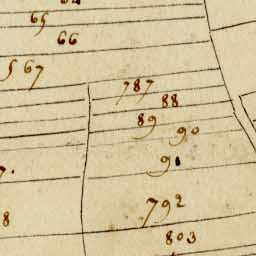 65
66
567
787
88
89
90
91
7.
792
8
803